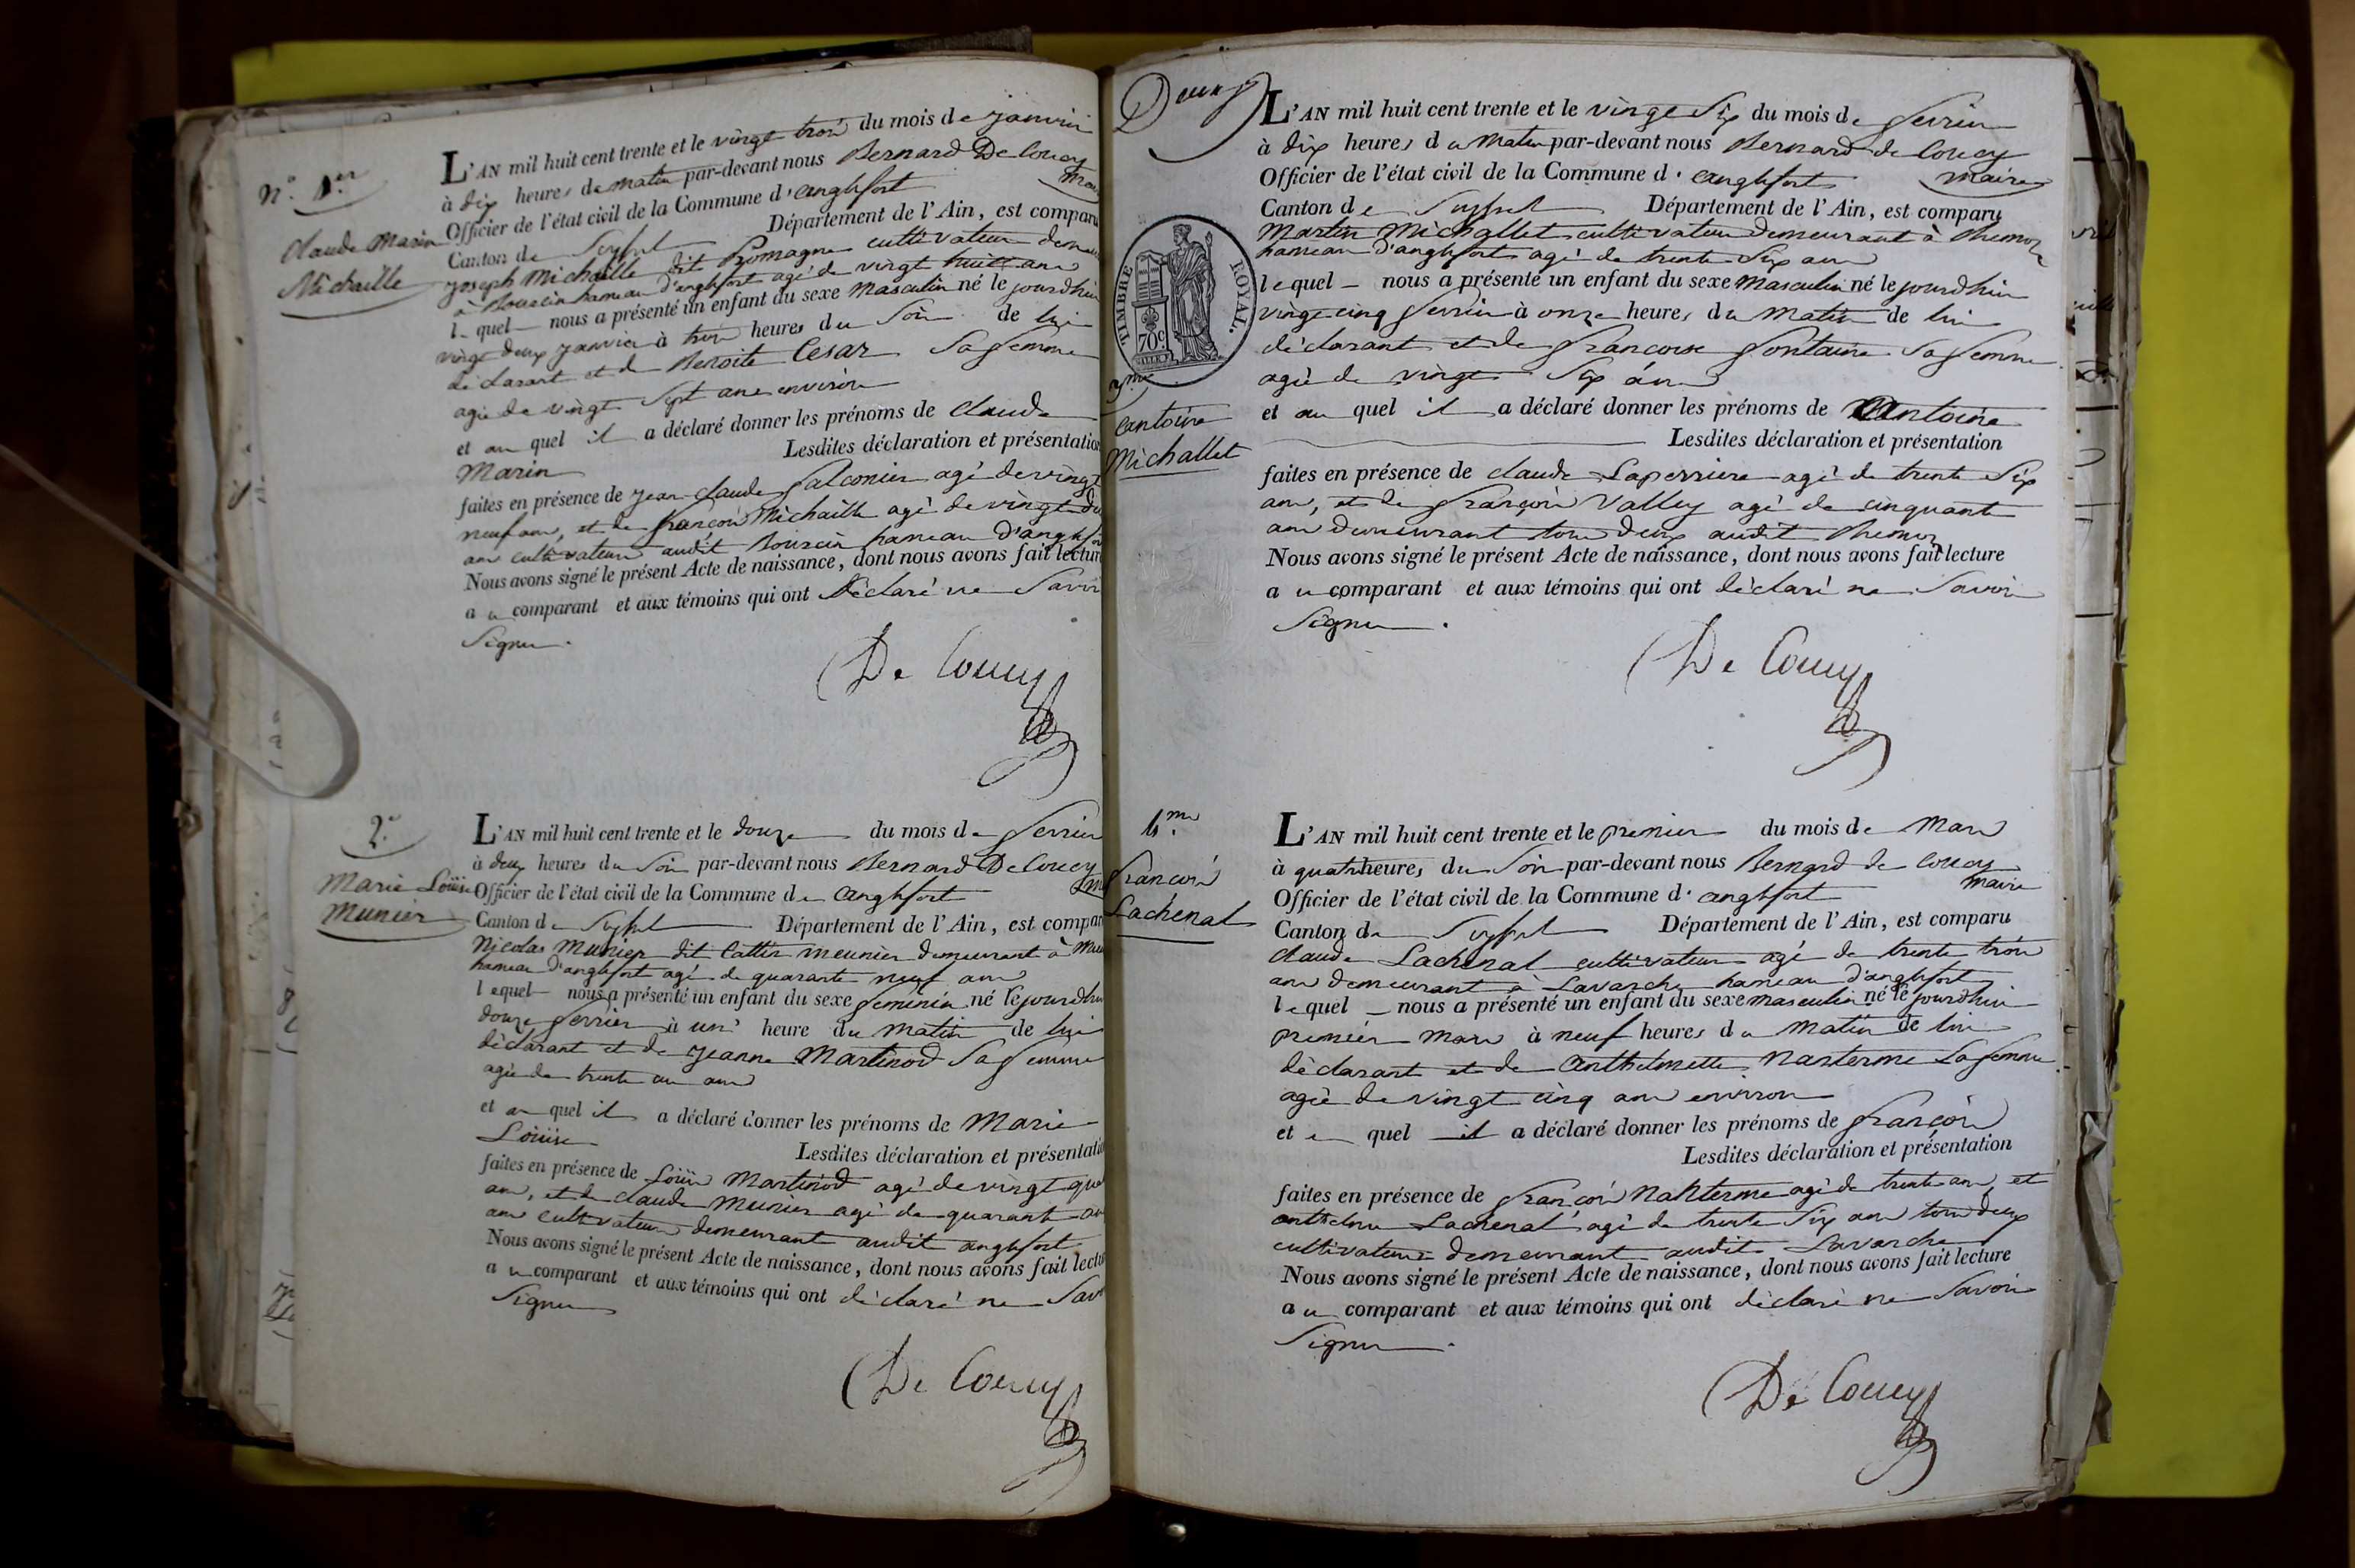 N.o 1.er
Claude Marin
Michaille
L'AN mil huit cent trente et le vingt trois du mois de janvier
à dix heures du matin par-devant nous Bernard De Coucy
Maire
Officier de l'état civil de la Commune d'anglefort
Canton de Seyssel Département de l'Ain, est comparu
joseph Michaille dit Romagne cultivateur
à hameau d'anglefort agé de vingt huit ans
lequel nous a présenté un enfant du sexe Masculin né le jourdhui
vingt deux janvier à trois heures du Soir de lui
déclarant et de Benoite Cesar Sa femme
agée de vingt Sept ans environ
et au quel il a déclaré donner les prénoms de Claude
Marin Lesdites déclaration et présentation
faites en présence de jean claude falconier agé de vingt
neuf ans, et de françois Michaille agé de vingt
ans cultivateurs audit hameau d'anglefort
Nous avons signé le présent Acte de naissance, dont nous avons fait lecture
au comparant et aux témoins qui ont déclaré ne Savoir
Signer.
De Coucy
2.e
Marie Loüise
Munier
L'AN mil huit cent trente et le douze du mois de fevrier
à deux heures du Soir par-devant nous Bernard De Coucy
Officier de l'état civil de la Commune de anglefort
Canton de Seyssel Département de l'Ain, est comparu
Nicolas Munier dit Cattin meunier demeurant à
hameau d'anglefort agé de quarante neuf ans
lequel nous a présenté un enfant du sexe feminin né le jourdhui
douze fevrier à une heure du matin de lui
déclarant et de jeanne Martinod Sa femme
agée de trente un ans
et au quel il a déclaré donner les prénoms de Marie
Loüise Lesdites déclaration et présentation
faites en présence de Loüis Martinod agé de vingt
ans, et de claude Munier agé de quarante
ans cultivateurs demeurant audit anglefort
Nous avons signé le présent Acte de naissance, dont nous avons fait lecture
au comparant et aux témoins qui ont déclaré ne Savoir
Signer
De Coucy
Deux
TIMBRE ROYAL.
70c.
3me
antoine
Michallet
L'AN mil huit cent trente et le vingt Six du mois de fevrier
à dix heures du Matin par-devant nous Bernard de Coucy
Officier de l'état civil de la Commune d'anglefort maire
Canton de Seyssel Département de l'Ain, est comparu
Martin Michallet cultivateur demeurant à
hameau d'anglefort agé de trente Six ans
lequel nous a présenté un enfant du sexe Masculin né le jourdhui
vingt cinq fevrier à onze heures du Matin de lui
déclarant et de francoise fontaine Sa femme
agée de vingt Six ans
et au quel il a déclaré donner les prénoms de Antoine
Lesdites déclaration et présentation
faites en présence de claude Laperriere agé de trente Six
ans, et de françois Valley agé de cinquant
ans demeurant tous deux audit
Nous avons signé le présent Acte de naissance, dont nous avons fait lecture
au comparant et aux témoins qui ont déclaré ne Savoir
Signer.
De Coucy
4.me
françois
Lachenal
L'AN mil huit cent trente et le premier du mois de Mars
à quatre heures du Soir par-devant nous Bernard de Coucy
Officier de l'état civil de la Commune d'anglefort maire
Canton de Seyssel Département de l'Ain, est comparu
claude Lachenal cultivateur agé de trente trois
ans demeurant à Lavarche hameau d'anglefort
lequel nous a présenté un enfant du sexe masculin né le jourdhui
premier mars à neuf heures du Matin de lui
déclarant et de Anthelmette Nanterme Sa femme
agée de vingt cinq ans environ
et quel il a déclaré donner les prénoms de françois
Lesdites déclaration et présentation
faites en présence de françois Nanterme agé de trente ans, et
anthelme Lachenal agé de trente Six ans tous deux
cultivateurs demeurant audit Lavarche
Nous avons signé le présent Acte de naissance, dont nous avons fait lecture
au comparant et aux témoins qui ont déclaré ne Savoir
Signer.
De Coucy